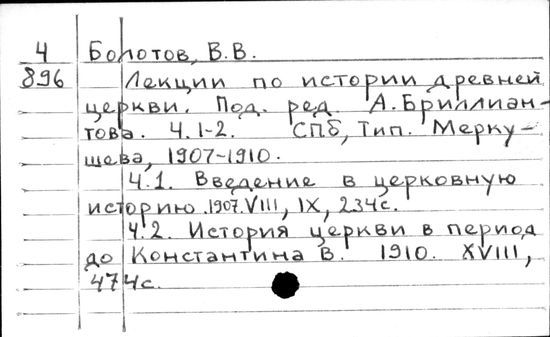 Ч Болотов, В.В.
896 Лекции по истории древней
церкви. Под. ред. А.Бриллиан-
това. Ч.1-2. СПб, Тип. Мерку-
шева, 1907-1910.
Ч.1. Введение в церковную
историю.1907.VIII, IX, 234с.
Ч.2. История церкви в период
до Константина В. 1910. XVIII,
474с.